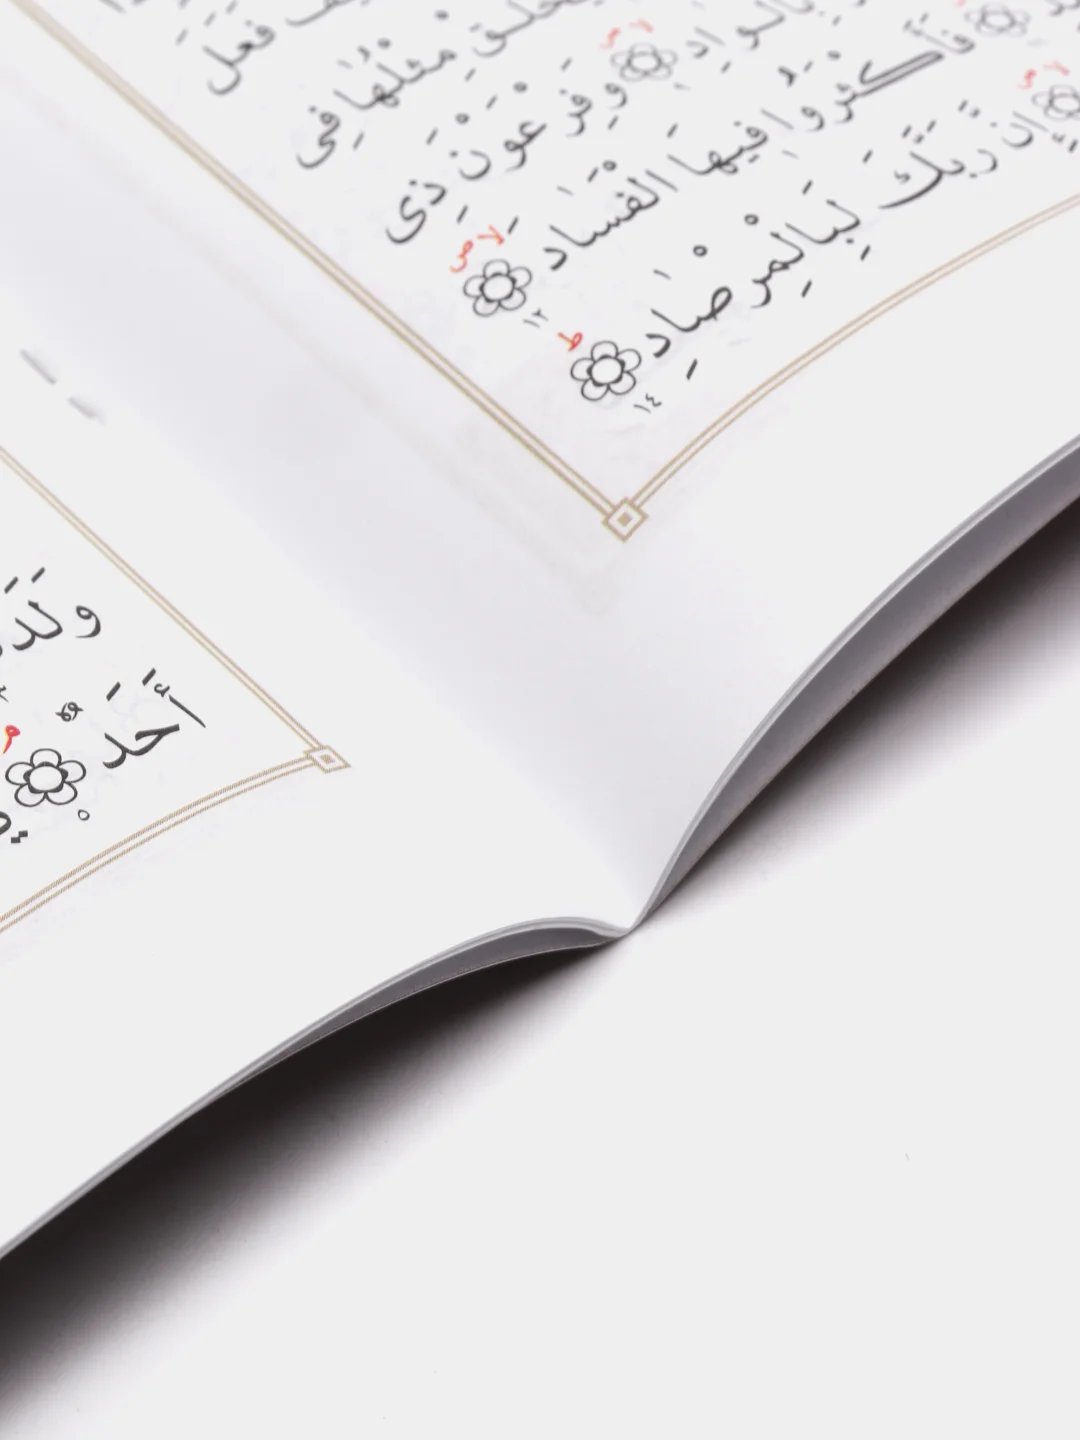 فَعَلَ
يُخْلَقْ مِثْلُهَا فِى
بِالْوَادِ لا ص وَفِرْعَوْنَ ذِى
فَأَكْثَرُوا فِيهَا الْفَسَادَ لا ص ١٢
إِنَّ رَبَّكَ لَبِالْمِرْصَادِ ط ١٤
أَحَدٌ م ٥